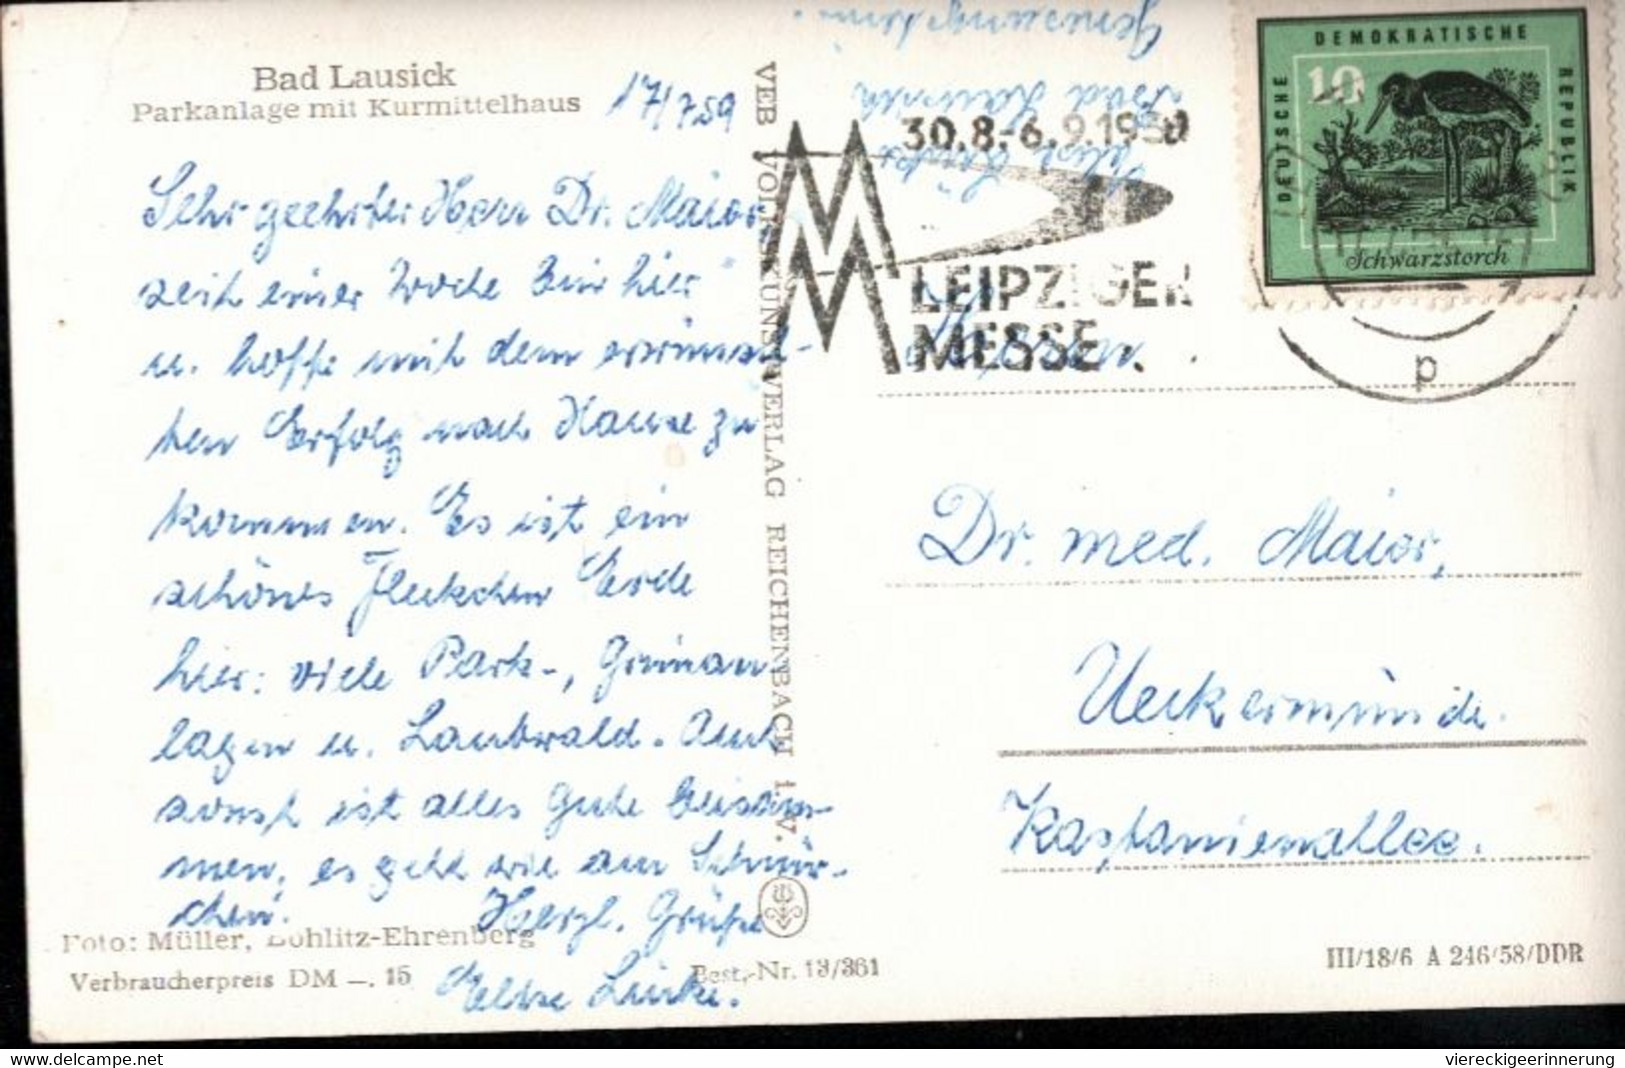 Bad Lausick
Parkanlage mit Kurmittelhaus
17/7.59
Sehr geehrter Herr Dr. Maior,
seit einer Woche bin hier
u. hoffe mit dem erwünsch-
ten Erfolg nach Hause zu
kommen. Es ist ein
schönes Fleckchen Erde
hier: viele Park-, Grünan
lagen u. Laubwald. Auch
sonst ist alles gute beisam-
men, es geht wie am Schnür-
chen.
Herzl. Grüße
Elise Lücke.
Foto: Müller, Böhlitz-Ehrenberg
Verbraucherpreis DM —. 15
Best.-Nr. 13/361
VEB VOLKSKUNSTVERLAG REICHENBACH i. V.
Bad Lausick
Elise Lücke
30.8.-6.9.1959
MM
LEIPZIGER
MESSE
DEUTSCHE DEMOKRATISCHE REPUBLIK
10
Schwarzstorch
p
Herrn
Dr. med. Maior,
Ueckermünde.
Kastanienallee.
III/18/6 A 246/58/DDR
viereckigeerinnerung